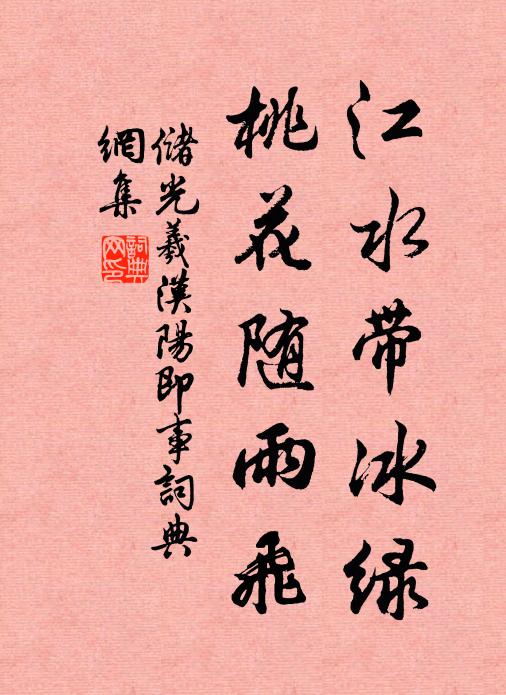 江水带冰绿
桃花随雨飛
儲光羲漢陽即事詞典
網集
詞典
网印